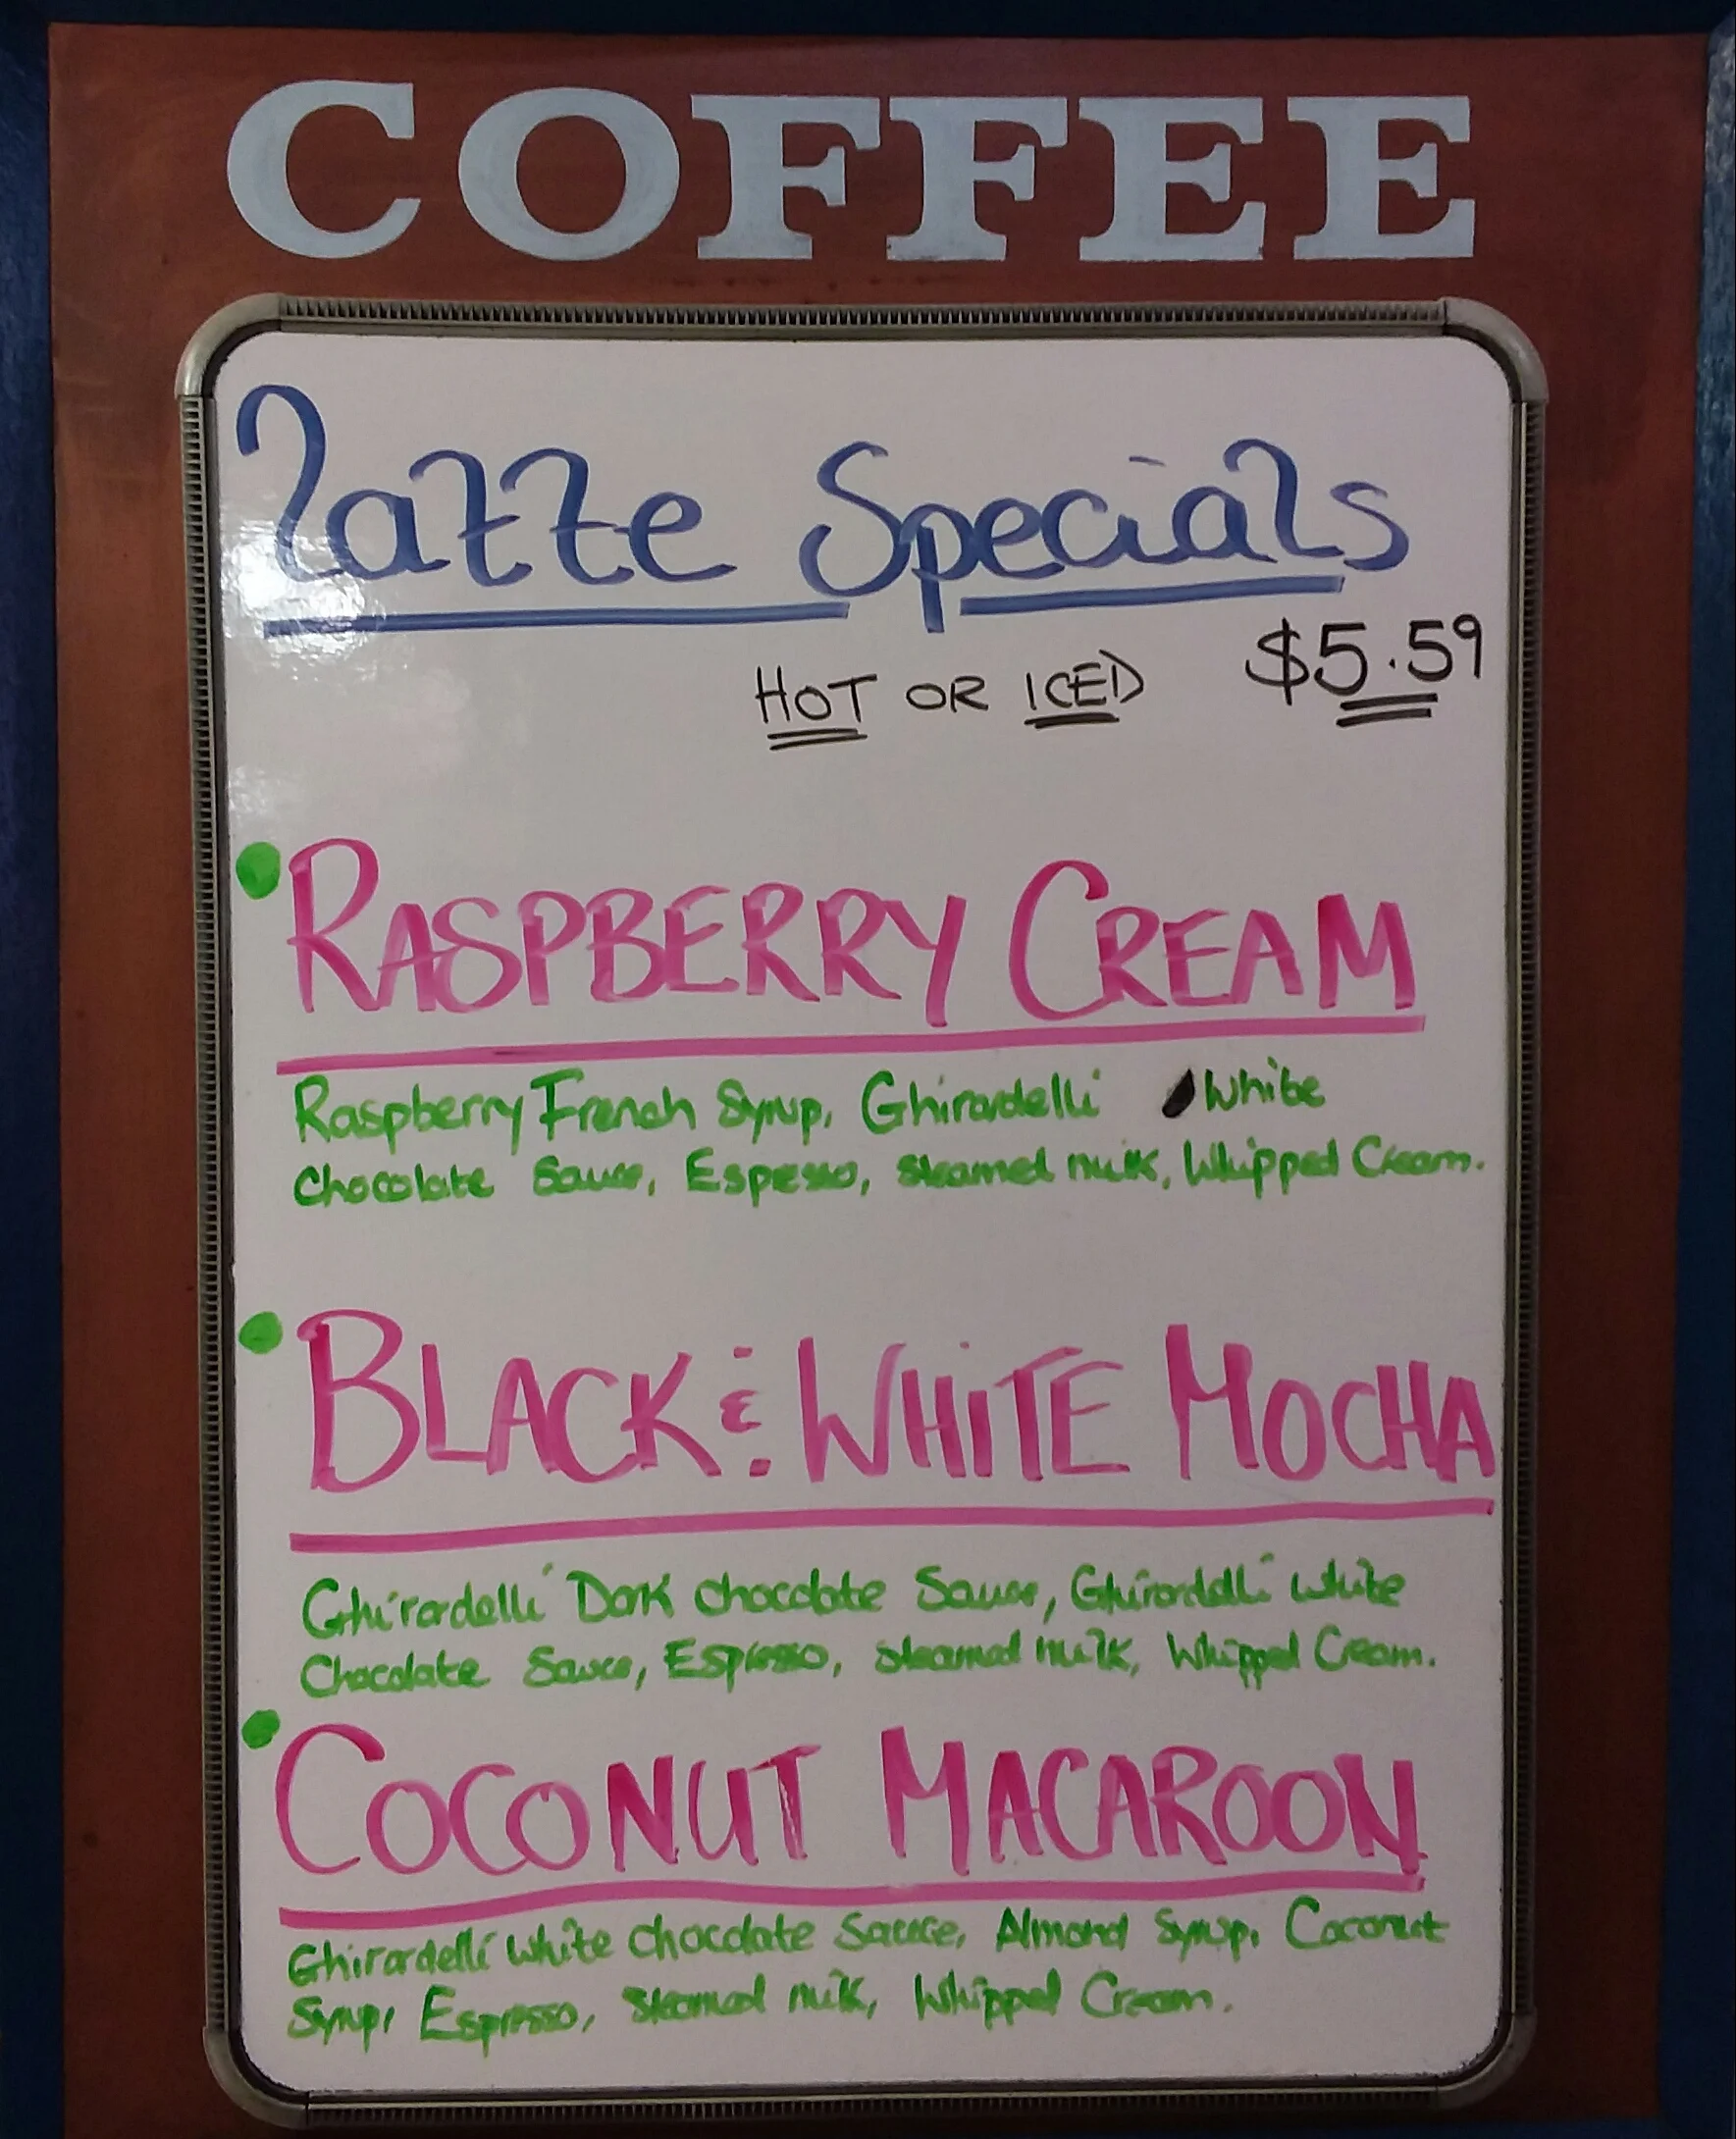 COFFEE
Latte Specials
HOT OR ICED $5.59
RASPBERRY CREAM
Raspberry French Syrup, Ghirardelli White
Chocolate Sauce, Espresso, Steamed milk, Whipped Cream.
BLACK & WHITE MOCHA
Ghirardelli Dark Chocolate Sauce, Ghirardelli White
Chocolate Sauce, Espresso, Steamed milk, Whipped Cream.
COCONUT MACAROON
Ghirardelli White Chocolate Sauce, Almond Syrup, Coconut
Syrup, Espresso, Steamed milk, Whipped Cream.